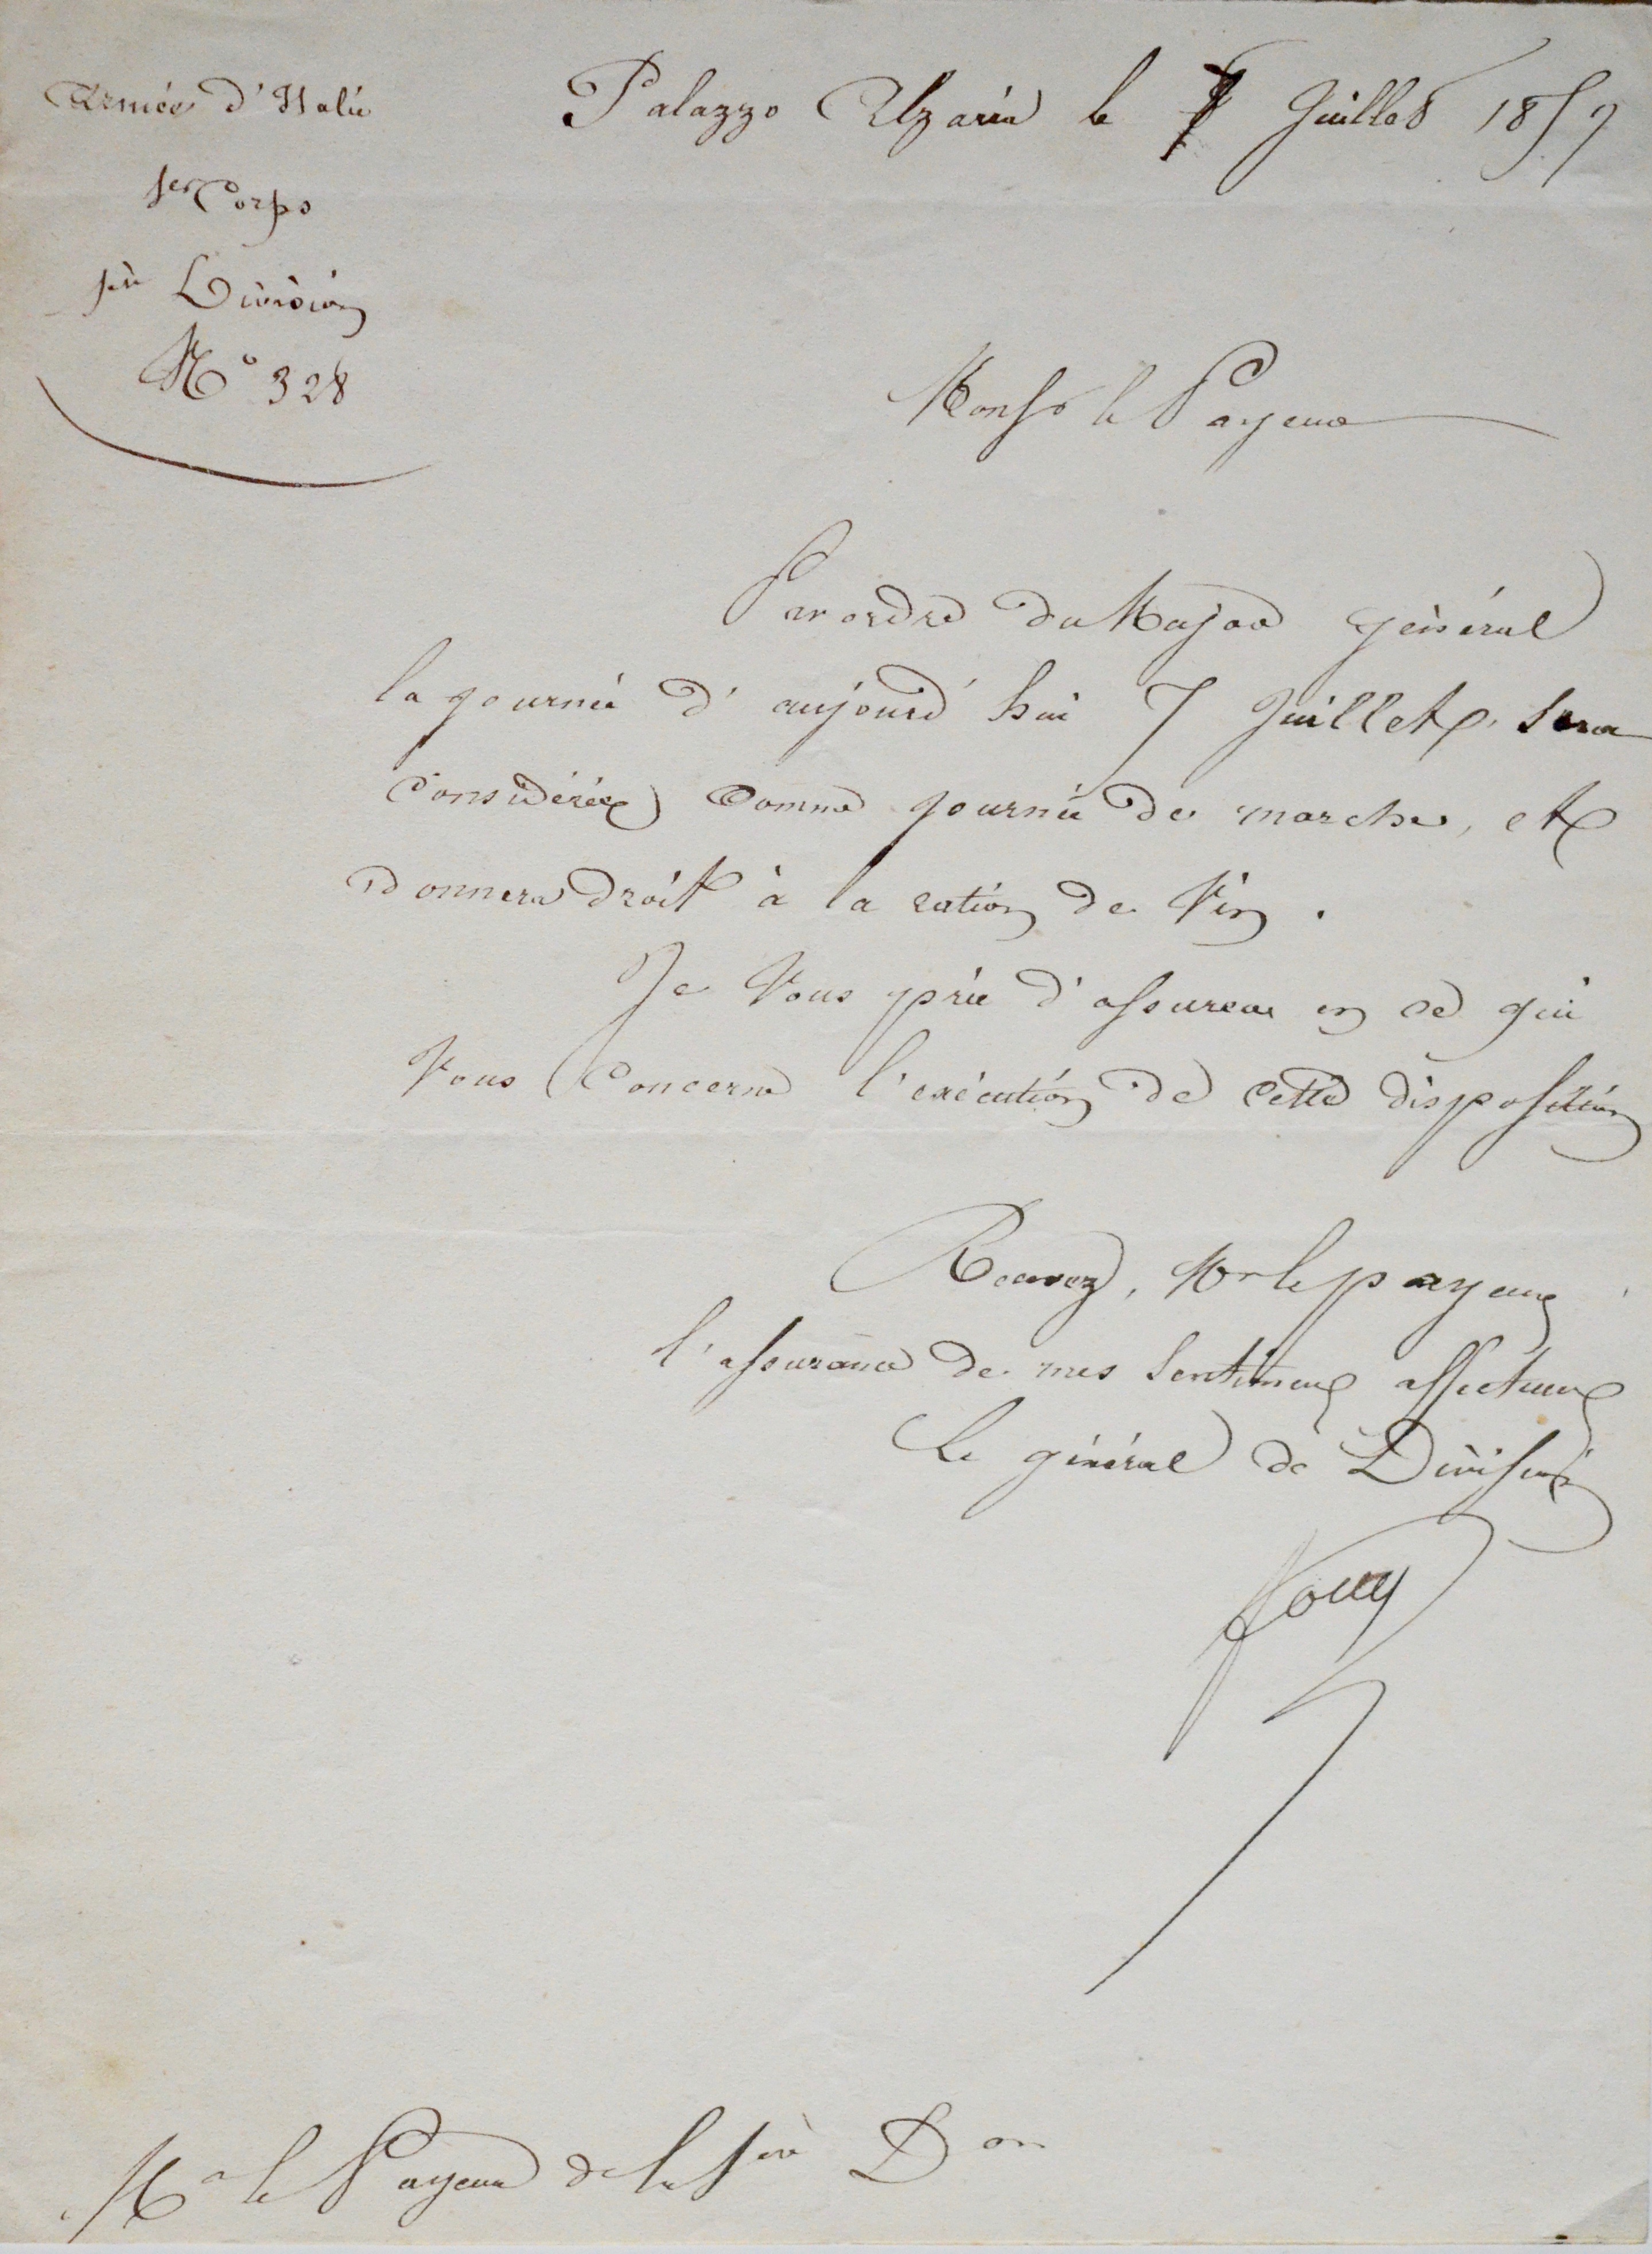 Armée d'Italie
Palazzo Alzarea le 7 Juillet 1859
1er Corps
1ère Division
No 328
Monsr le Payeur
Par ordre du Major général
la journée d'aujourd'hui 7 Juillet, sera
considérée comme journée de marche, et
donnera droit à la ration de Vin.
Je Vous prie d'assurer en ce qui
Vous Concerne l'exécution de cette disposition
Recevez, Mr le payeur
l'assurance de mes Sentimens affectueux
Le général de Division
Forey
Mr le Payeur de la 1ère Don